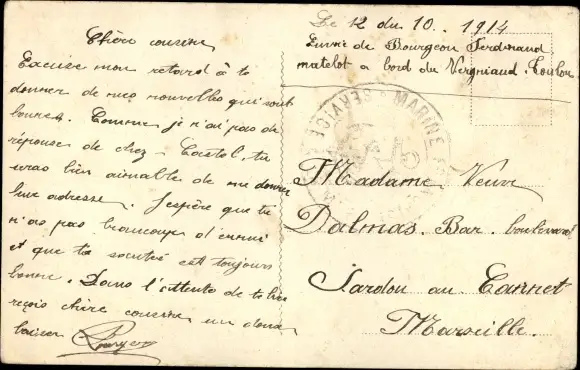 Chère cousine
Excuse mon retard à te
donner de mes nouvelles qui sont
bonnes. Comme je n'ai pas de
réponse de chez Castel, tu
seras bien aimable de me donner
leur adresse. J'espère que tu
n'as pas beaucoup d'ennui
et que ta santée est toujours
bonne. Dans l'attente de te lire
reçois chère cousine un doux
baiser
Le 12 du 10. 1914
Envoie de Bourgeon Ferdinand
matelot a bord du Vergniaud. Toulon
MARINE
SERVICE
Madame Veuve
Dalmas. Bar. boulevard
Jardou au Cannet
Marseille.